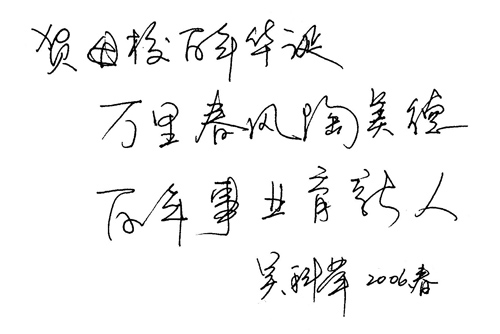 贺母校百年华诞
万里春风陶美德
百年事业育新人
吴科苹 2006春